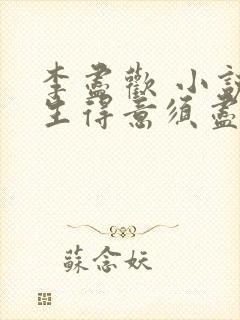 李盡歡 小說
生得意須盡
蘇念妖